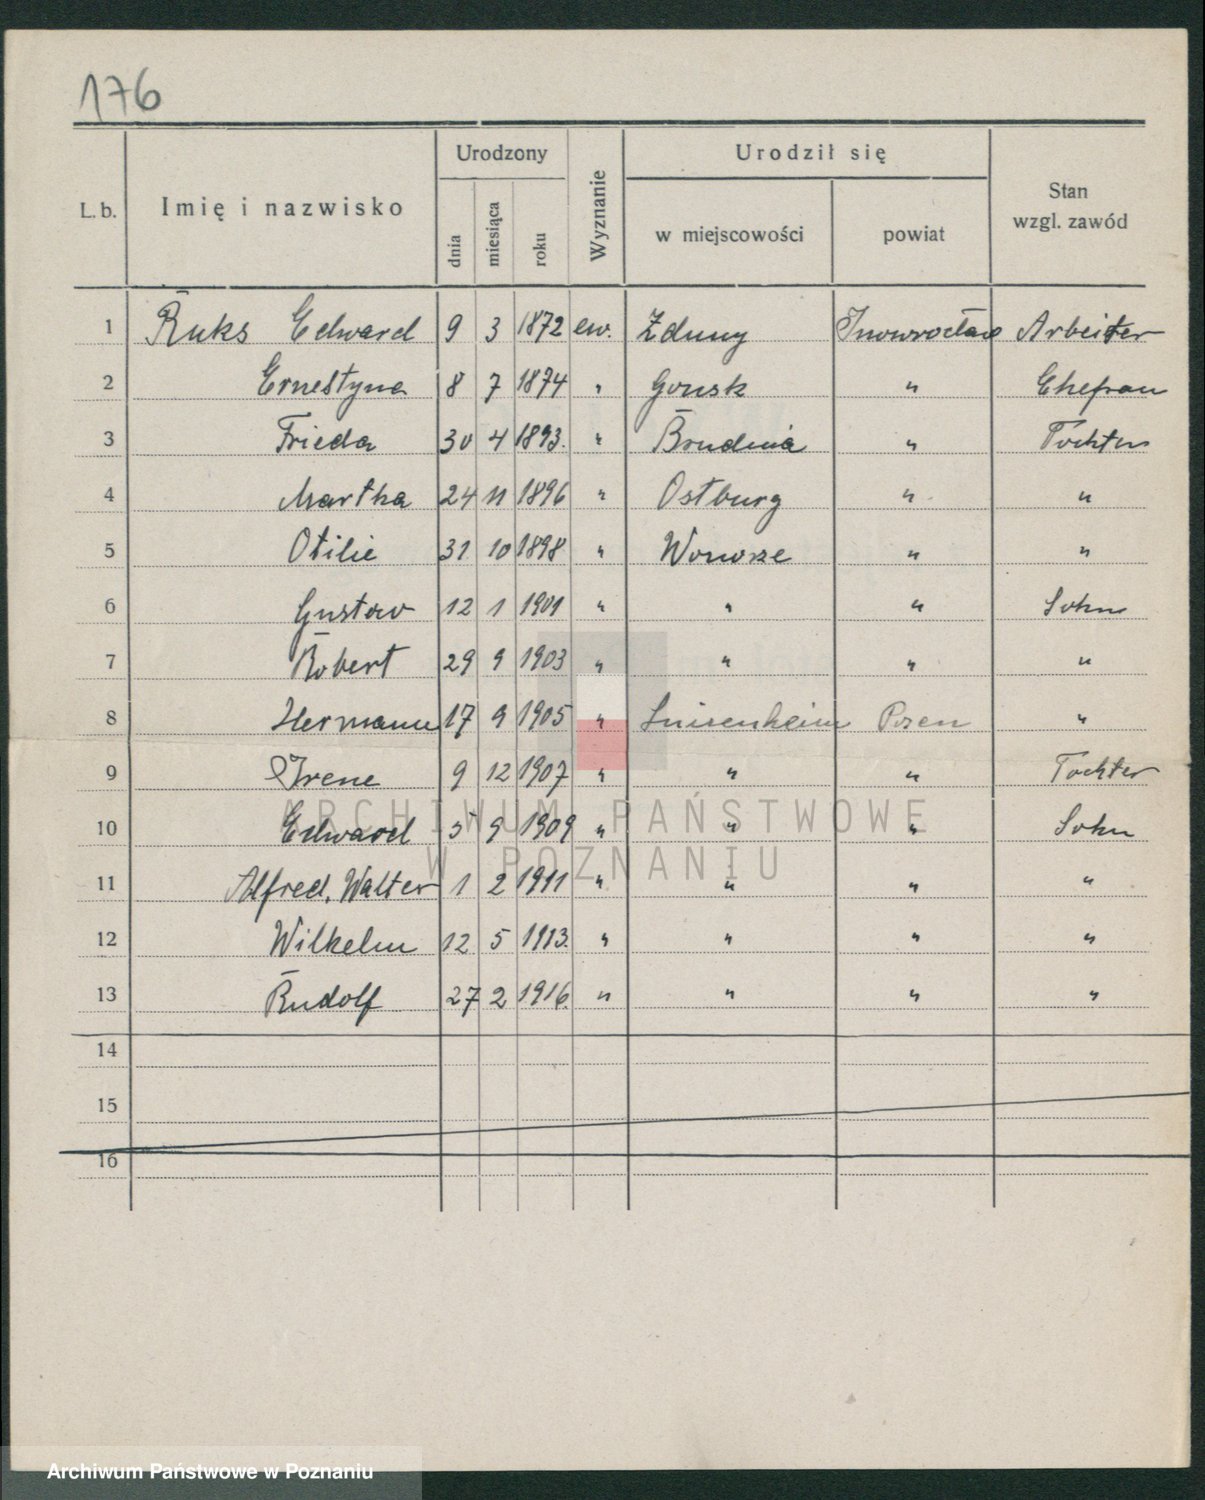 176
L. b. Imię i nazwisko Urodzony Wyznanie Urodził się Stan wzgl. zawód
dnia miesiąca roku w miejscowości powiat
1 Ruks Edward 9 3 1872 ew. Zduny Inowrocław Arbeiter
2 Ernestyna 8 7 1874 " Gonsk " Ehefrau
3 Frieda 30 4 1893. " Brudnia " Tochter
4 Martha 24 11 1896 " Ostburg " "
5 Otilie 31 10 1898 " Wonorze " "
6 Gustaw 12 1 1901 " " " Sohn
7 Robert 29 9 1903 " " " "
8 Hermann 17 9 1905 " Luisenheim Posen "
9 Irene 9 12 1907 " " " Tochter
10 Edward 5 9 1909 " " " Sohn
11 Alfred, Walter 1 2 1911 " " " "
12 Wilhelm 12 5 1913. " " " "
13 Rudolf 27 2 1916. " " " "
14
15
16
ARCHIWUM PAŃSTWOWE
W POZNANIU
Archiwum Państwowe w Poznaniu